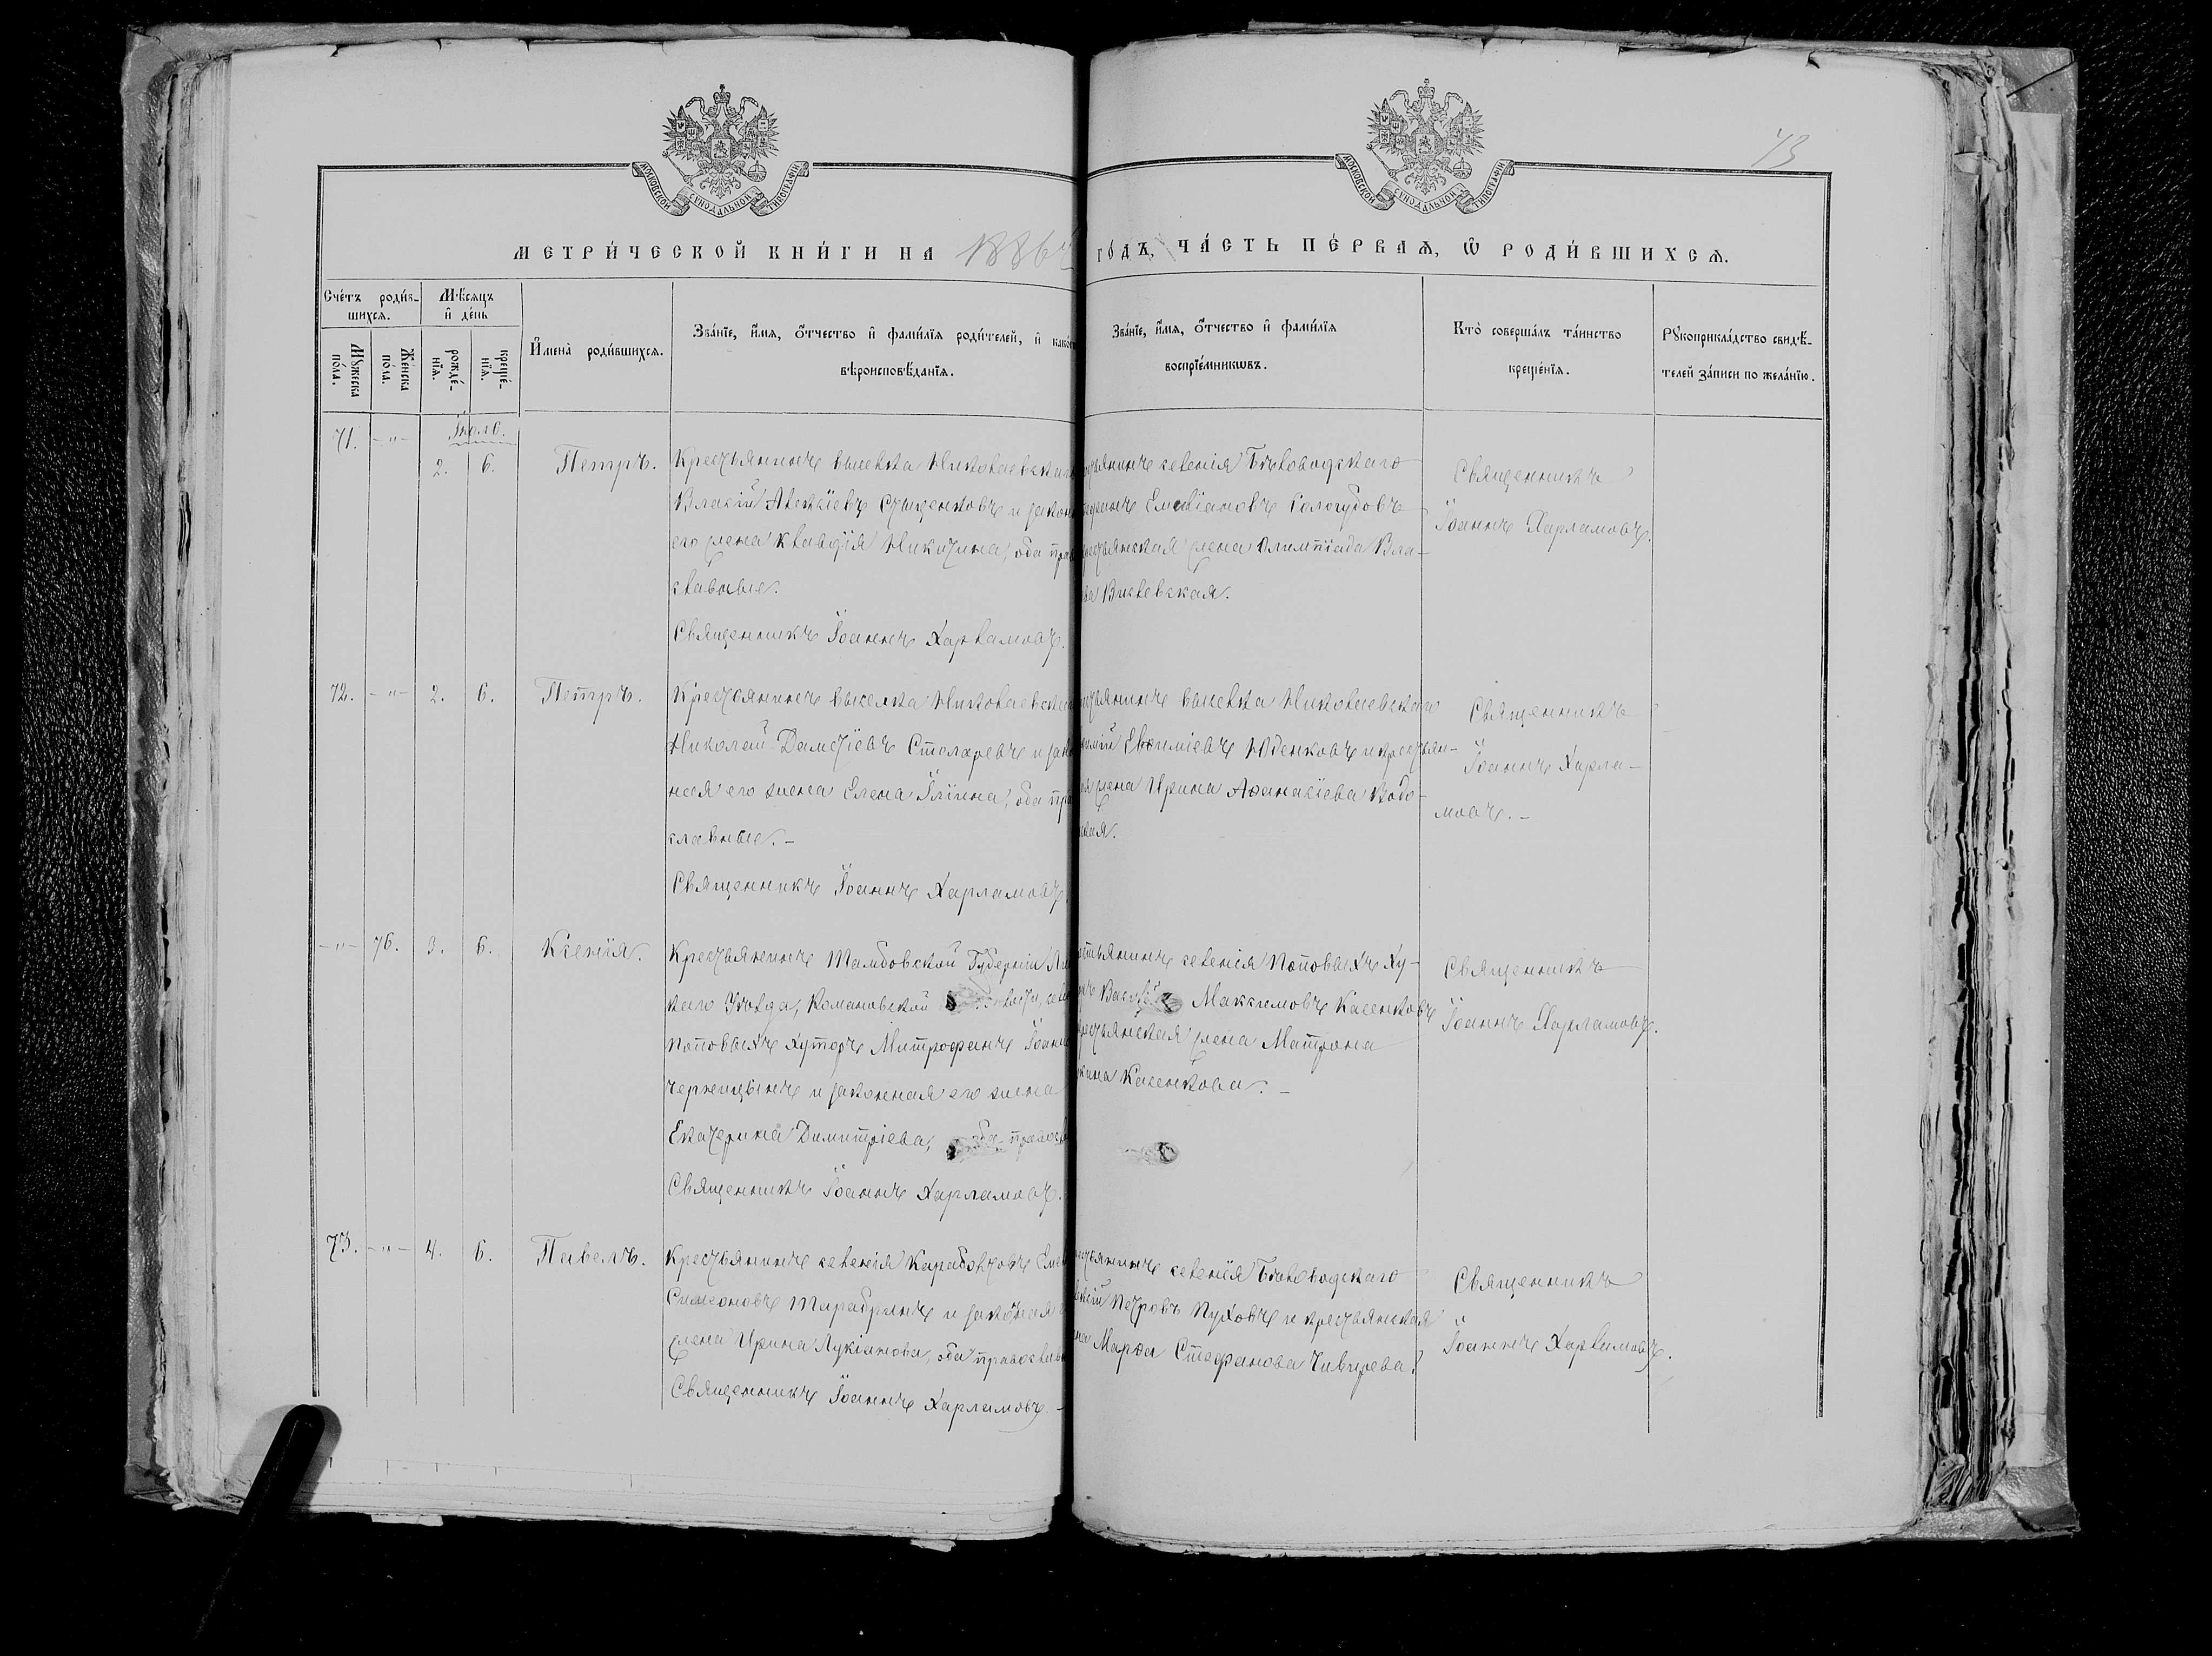 73
МОСКОВСКОЙ СѴНОДАЛЬНОЙ ТИПОГРАФІИ
МОСКОВСКОЙ СѴНОДАЛЬНОЙ ТИПОГРАФІИ
МЕТРИ́ЧЕСКОЙ КНИ́ГИ НА 1886й
ГО́ДЪ, ЧА́СТЬ ПЕ́РВАѦ, Ѽ РОДИ́ВШИХСѦ.
Сче́тъ роди́в-
шихсѧ.
Мѣ́сѧцъ
и҆ де́нь
Мꙋ́жеска
по́ла.
Же́нска
по́ла.
рожде́-
нїѧ.
креще́-
нїѧ.
И҆мена̀ роди́вшихсѧ.
Зва́нїе, и҆́мѧ, ѻ҆́тчество и҆ фами́лїѧ роди́телей, и҆ како́гѡ
вѣроисповѣ́данїѧ.
Зва́нїе, и҆́мѧ, ѻ҆́тчество и҆ фами́лїѧ
воспрїе́мникѡвъ.
Кто̀ соверша́лъ та́инство
креще́нїѧ.
Рꙋкоприкла́дство свидѣ́-
телей за́писи по жела́нїю.
71. -"-
2. 6. Петръ.
Крестьянинъ выселка Николаевскаго
Власій Алексіевъ и закон
его жена Клавдія Никитина, оба прав
славные.
Священникъ Іоаннъ Харламовъ.
крестьянинъ селенія Бѣловодскаго
Емеліановъ Гологудовъ
крестьянская жена Олимпіада Вла-
Священникъ
Іоаннъ Харламовъ.
72. -"- 2. 6. Петръ.
Крестьянинъ выселка Николаевскаго
Николай Столаревъ и зако
ная его жена Елена Іліина, оба пра
славные. -
Священникъ Іоаннъ Харламовъ
крестьянинъ выселка Николаевскаго
Евѳиміевъ Юденковъ и крестьян-
жена Ирина Аѳанасіева
Священникъ
Іоаннъ Харла-
мовъ. -
-"- 76. 3. 6. Ксенія.
Крестьянинъ Тамбовской Губерніи
Уѣзда, Романовской волости, селе
Поповыхъ Хуторъ Митрофанъ Іоанно
Черницынъ и законная его жена
Екатерина Димитріева, оба правосл
Священникъ Іоаннъ Харламовъ.
крестьянинъ селенія Поповыхъ Ху-
Максимовъ Касенковъ
крестьянская жена Матрона
Касенкова. -
Священникъ
Іоаннъ Харламовъ.
73. -"- 4. 6. Павелъ.
Крестьянинъ селенія
Симеоновъ Тарабринъ и законая
жена Ирина Лукіанова, оба православн
Священникъ Іоаннъ Харламовъ. -
крестьянинъ селенія Бѣловодскаго
Петровъ Пуховъ и крестьянская
Марѳа Стефанова
Священникъ
Іоаннъ Харламовъ.